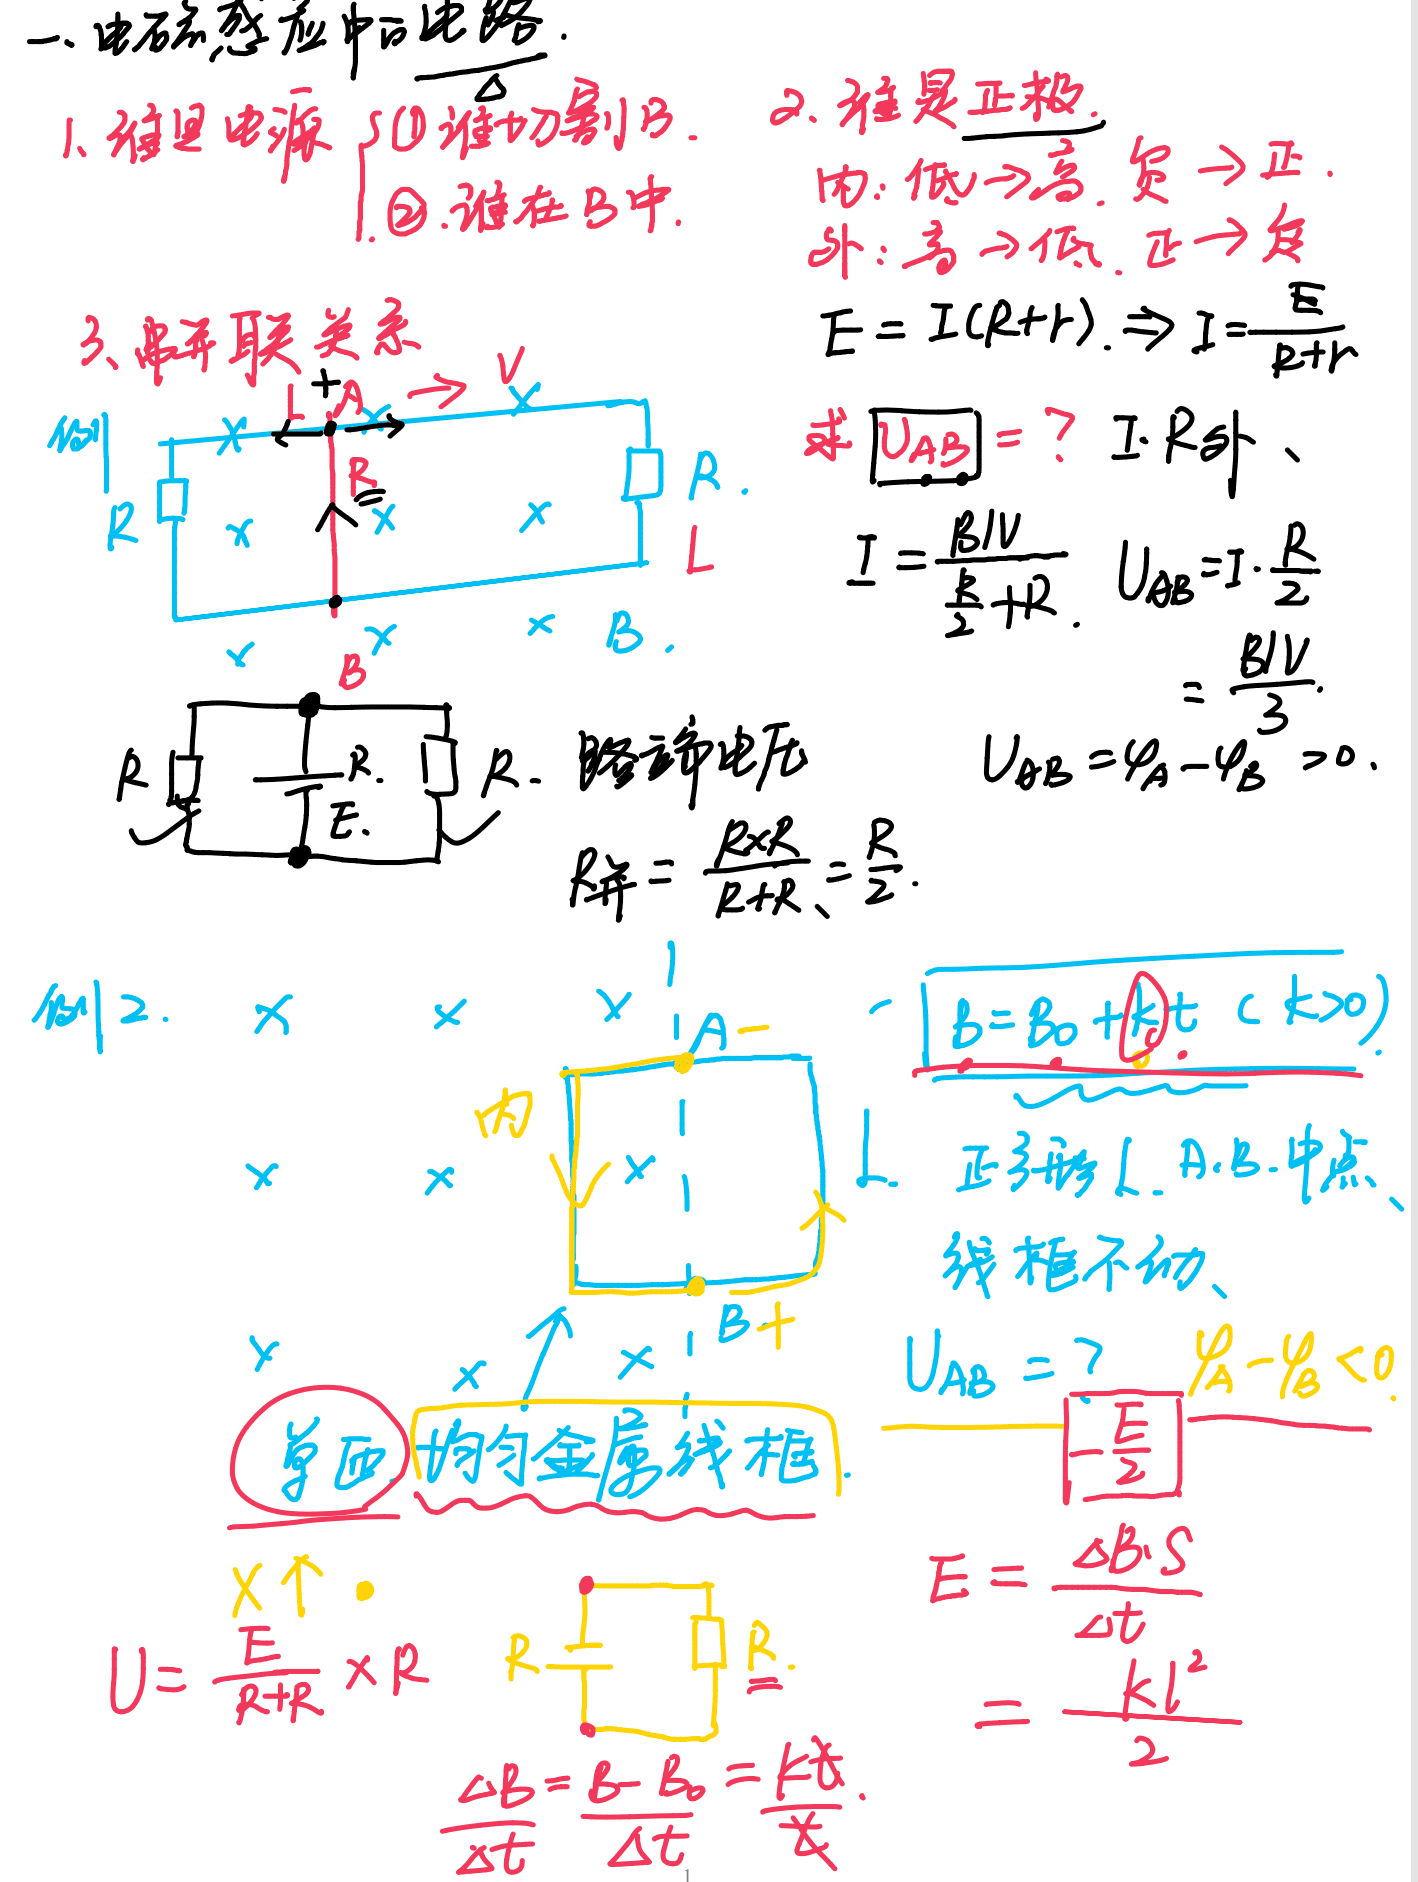 一、电磁感应中的电路.
1、谁是电源 ① 谁切割B.
②.谁在B中.
2.谁是正极.
内:低→高. 负→正.
外:高→低. 正→负
3、串并联关系
E=I(R+r).⇒I=E/(R+r)
例1
L + A → V
R R R.
L
B.
B
求 UAB=? I·R外、
I=BlV/(R/2+R). UAB=I·R/2
=BlV/3.
UAB=φA-φB>0.
R R. E. R.
路端电压
R并=R×R/(R+R)、=R/2.
例2.
A -
内
L.
B +
B=B0+kt (k>0).
正方形L. A.B.中点、
线框不动、
UAB=? φA-φB<0.
-E/2
单匝 均匀金属线框.
×↑ •
U=E/(R+R)×R
R R.
E=ΔB·S/Δt
=kl²/2
ΔB/Δt=B-B0/Δt=kt/t.
1